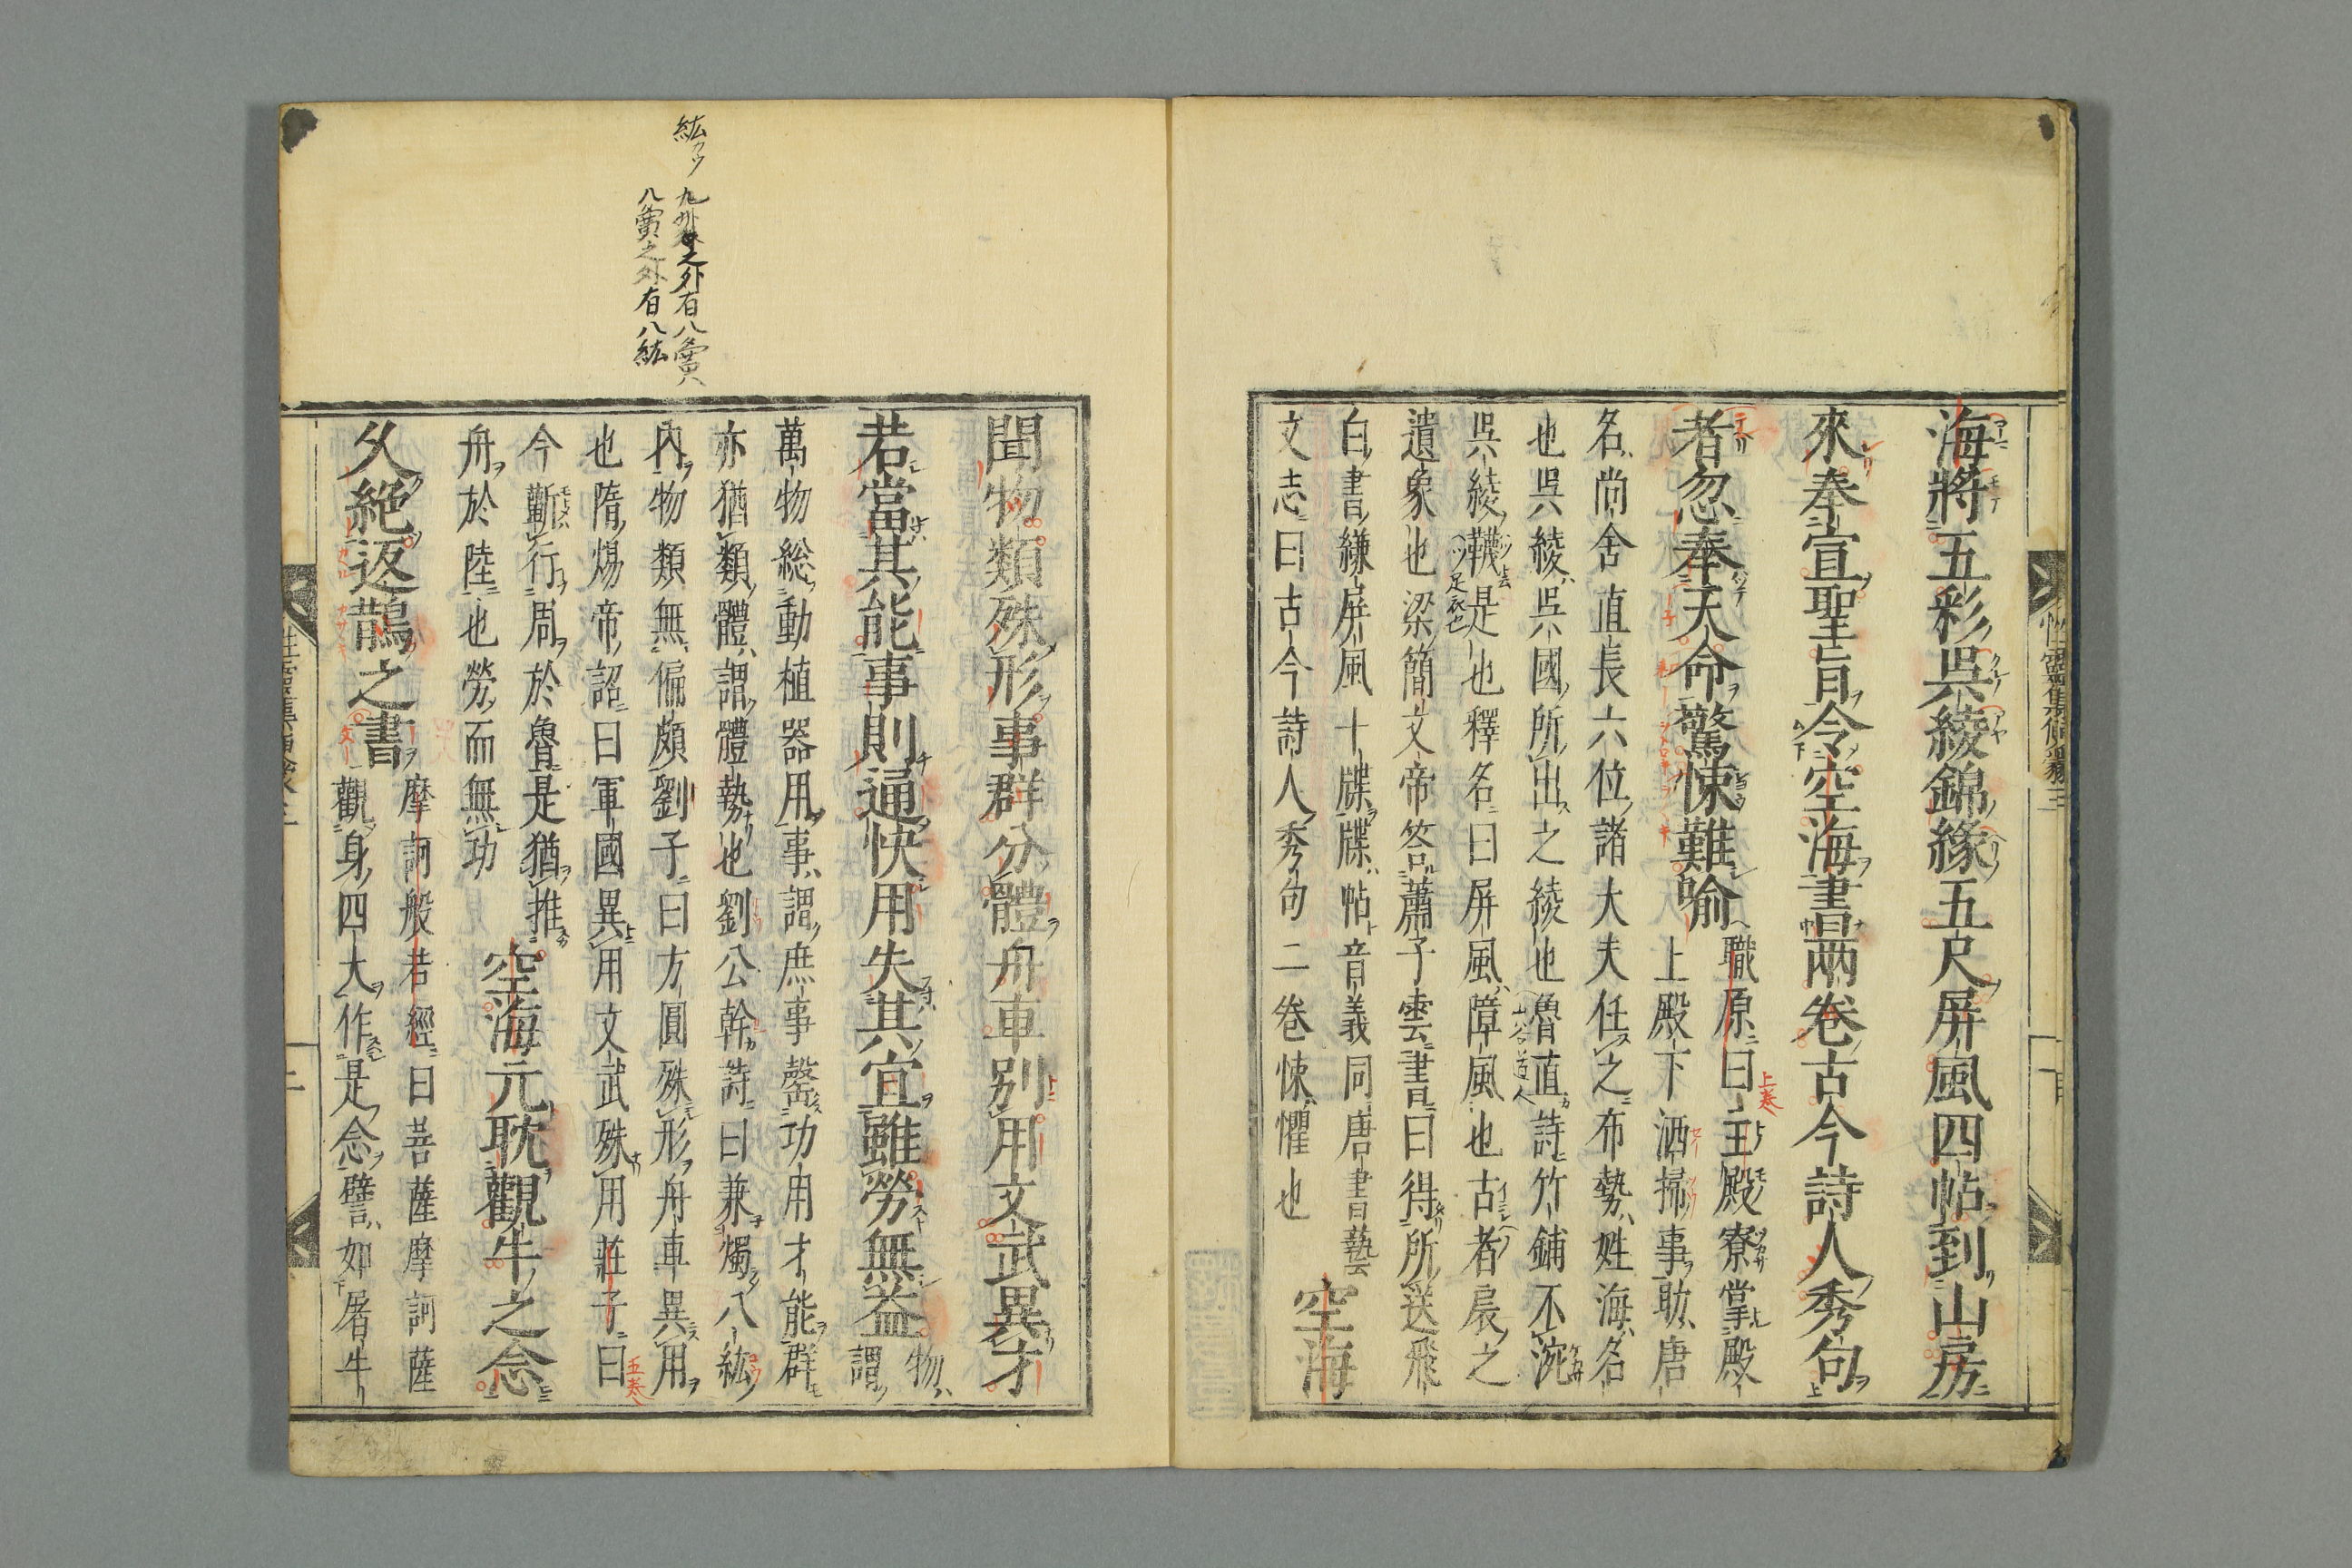 海將五彩吳綾錦緣五尺屏風四帖到山房
來奉宣聖旨令空海書兩卷古今詩人秀句
者忽奉天命驚悚難喻
職原曰主殿寮掌殿
上殿下洒掃事助唐
名尚舍直長六位諸大夫任之布勢姓海名
也吳綾吳國所出之綾也魯直詩竹鋪不涴
吳綾襪是也釋名曰屏風障風也古者扆之
遺象也梁簡文帝答蕭子雲書曰得所送飛
白書縑屏風十牒牒帖音義同唐書藝
文志曰古今詩人秀句二卷悚懼也
空海
聞物類殊形事群分體舟車別用文武異才
若當其能事則通快用失其宜雖勞無益
物
謂
萬物総動植器用事謂庶事罄功用才能群
亦猶類體謂體勢也劉公幹詩曰兼燭八紘
內物類無偏頗劉子曰方圓殊形舟車異用
也隋煬帝詔曰軍國異用文武殊用莊子曰
今蘄行周於魯是猶推
舟於陸也勞而無功
空海元耽觀牛之念
久絕返鵲之書
摩訶般若經曰菩薩摩訶薩
觀身四大作是念譬如屠牛
紘クワウ
九州之外有八夤
八夤之外有八紘